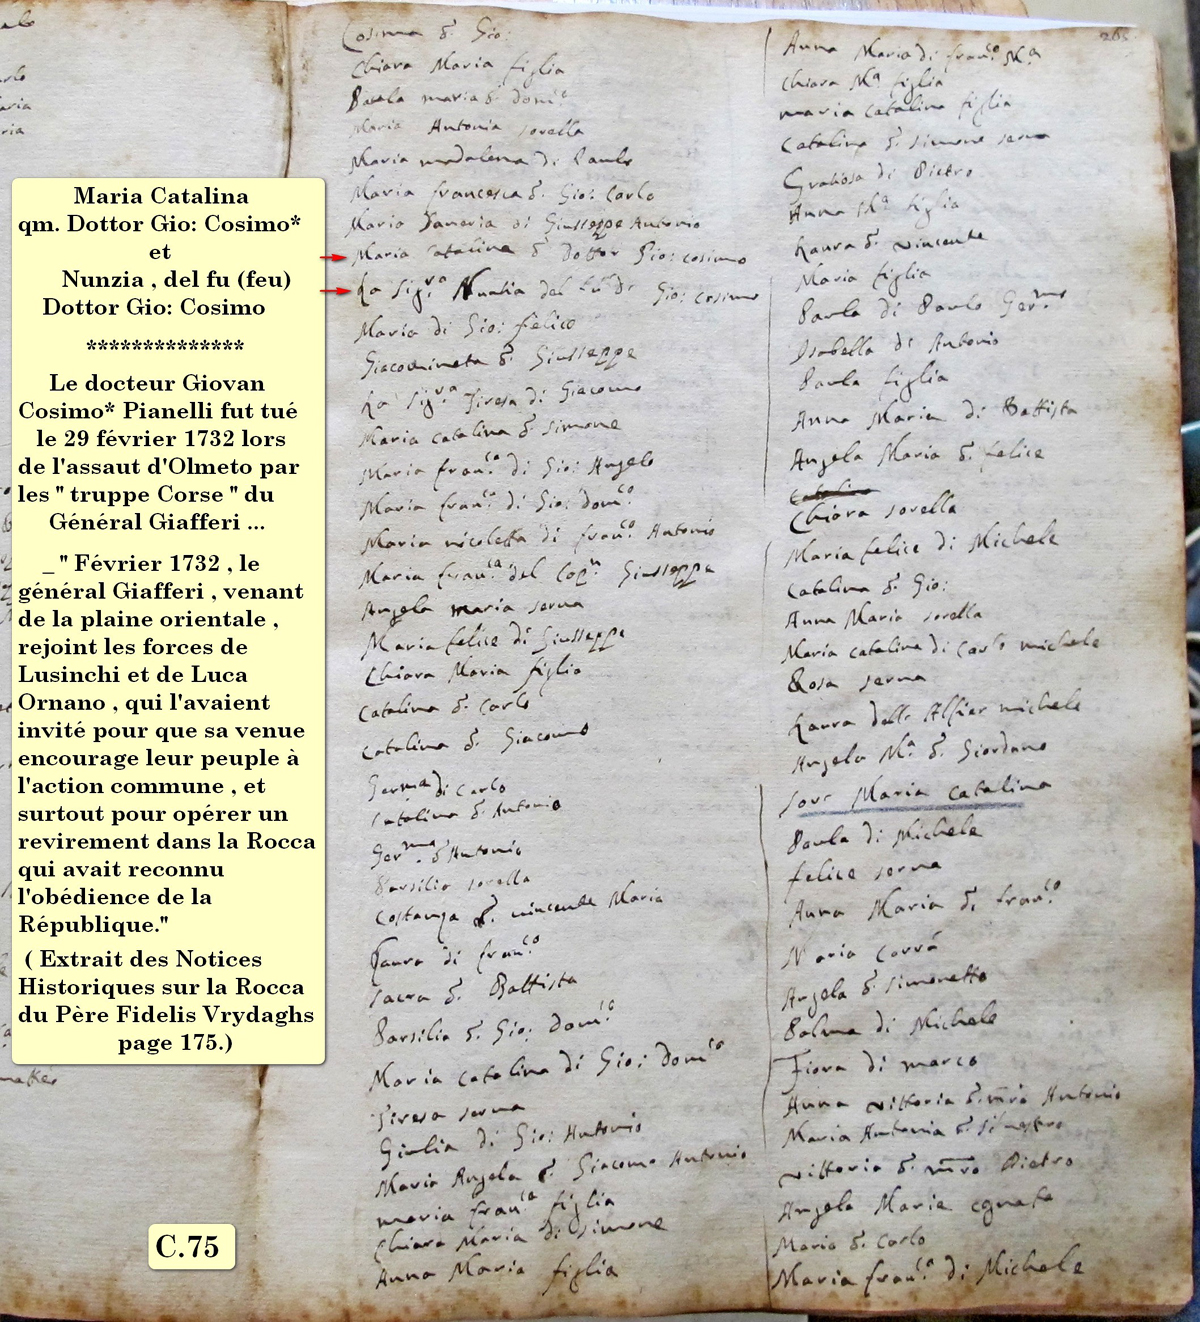 Maria Catalina
qm. Dottor Gio: Cosimo*
et
Nunzia , del fu (feu)
Dottor Gio: Cosimo
**************
Le docteur Giovan
Cosimo* Pianelli fut tué
le 29 février 1732 lors
de l'assaut d'Olmeto par
les " truppe Corse " du
Général Giafferi ...
_ " Février 1732 , le
général Giafferi , venant
de la plaine orientale ,
rejoint les forces de
Lusinchi et de Luca
Ornano , qui l'avaient
invité pour que sa venue
encourage leur peuple à
l'action commune , et
surtout pour opérer un
revirement dans la Rocca
qui avait reconnu
l'obédience de la
République."
( Extrait des Notices
Historiques sur la Rocca
du Père Fidelis Vrydaghs
page 175.)
C.75
Cosima q. Gio:
Chiara Maria figlia
Paula maria q. Domco
Maria Antonia sorella
Maria madalena di Paulo
Maria francesca q. Gio: Carlo
Maria di Giuseppe Antonio
Maria Catalina q. Dottor Gio: cosimo
La Sigra Nuntia del fu Dr Gio: Cosimo
Maria di Gio: felice
Giacomineta q. Giusseppe
La Sigra Tiresa di Giacomo
Maria Catalina q. Simone
Maria franca di Gio: Angelo
Maria franca di Gio: Domco
Maria nicoletta di franco Antonio
Maria franca del Capn Giusseppe
Angela maria serva
Maria felice di Giusseppe
Chiara Maria figlia
Catalina q. Carlo
Catalina q. Giacomo
Germa di Carlo
Catalina q. Antonio
Germa q. Antonio
Parsilia sorella
Costanza q. vincente Maria
Laura di franco
Sacra q. Battista
Parsilia q. Gio: Domco
Maria Catalina di Gio: Domco
Tiresa serva
Giulia di Gio: Antonio
Maria Angela q. Giacomo Antonio
maria franca figlia
Chiara Maria di Simone
Anna Maria figlia
265
Anna Maria di franco Ma
Chiara Ma figlia
maria catalina figlia
Catalina q. simone serva
Gratiosa di Pietro
Anna Ma figlia
Laura q. vincente
Maria figlia
Paula di Paulo Germo
Isabella di Antonio
Paula figlia
Anna Maria di Battista
Angela Maria q. felice
Catalina
Chiara sorella
Maria felice di Michele
Catalina q. Gio:
Anna Maria sorella
Maria catalina di Carlo michele
Rosa serva
Laura dell Alfier michele
Angela Ma q. Giordano
Sore Maria Catalina
Paula di Michele
felice serva
Anna Maria di franco
Maria Corrà
Angela q. Simonetto
Palma di Michele
Fiora di marco
Anna vittoria q. mro Antonio
Maria Antonia q. Silvestro
vittoria q. mro Pietro
Angela Maria cgnata
Maria q. Carlo
Maria franca di Michele